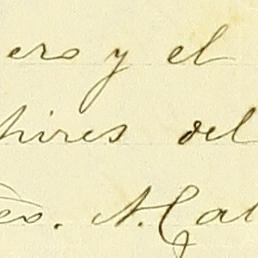 ero y el
hires del
eo. N. Cal